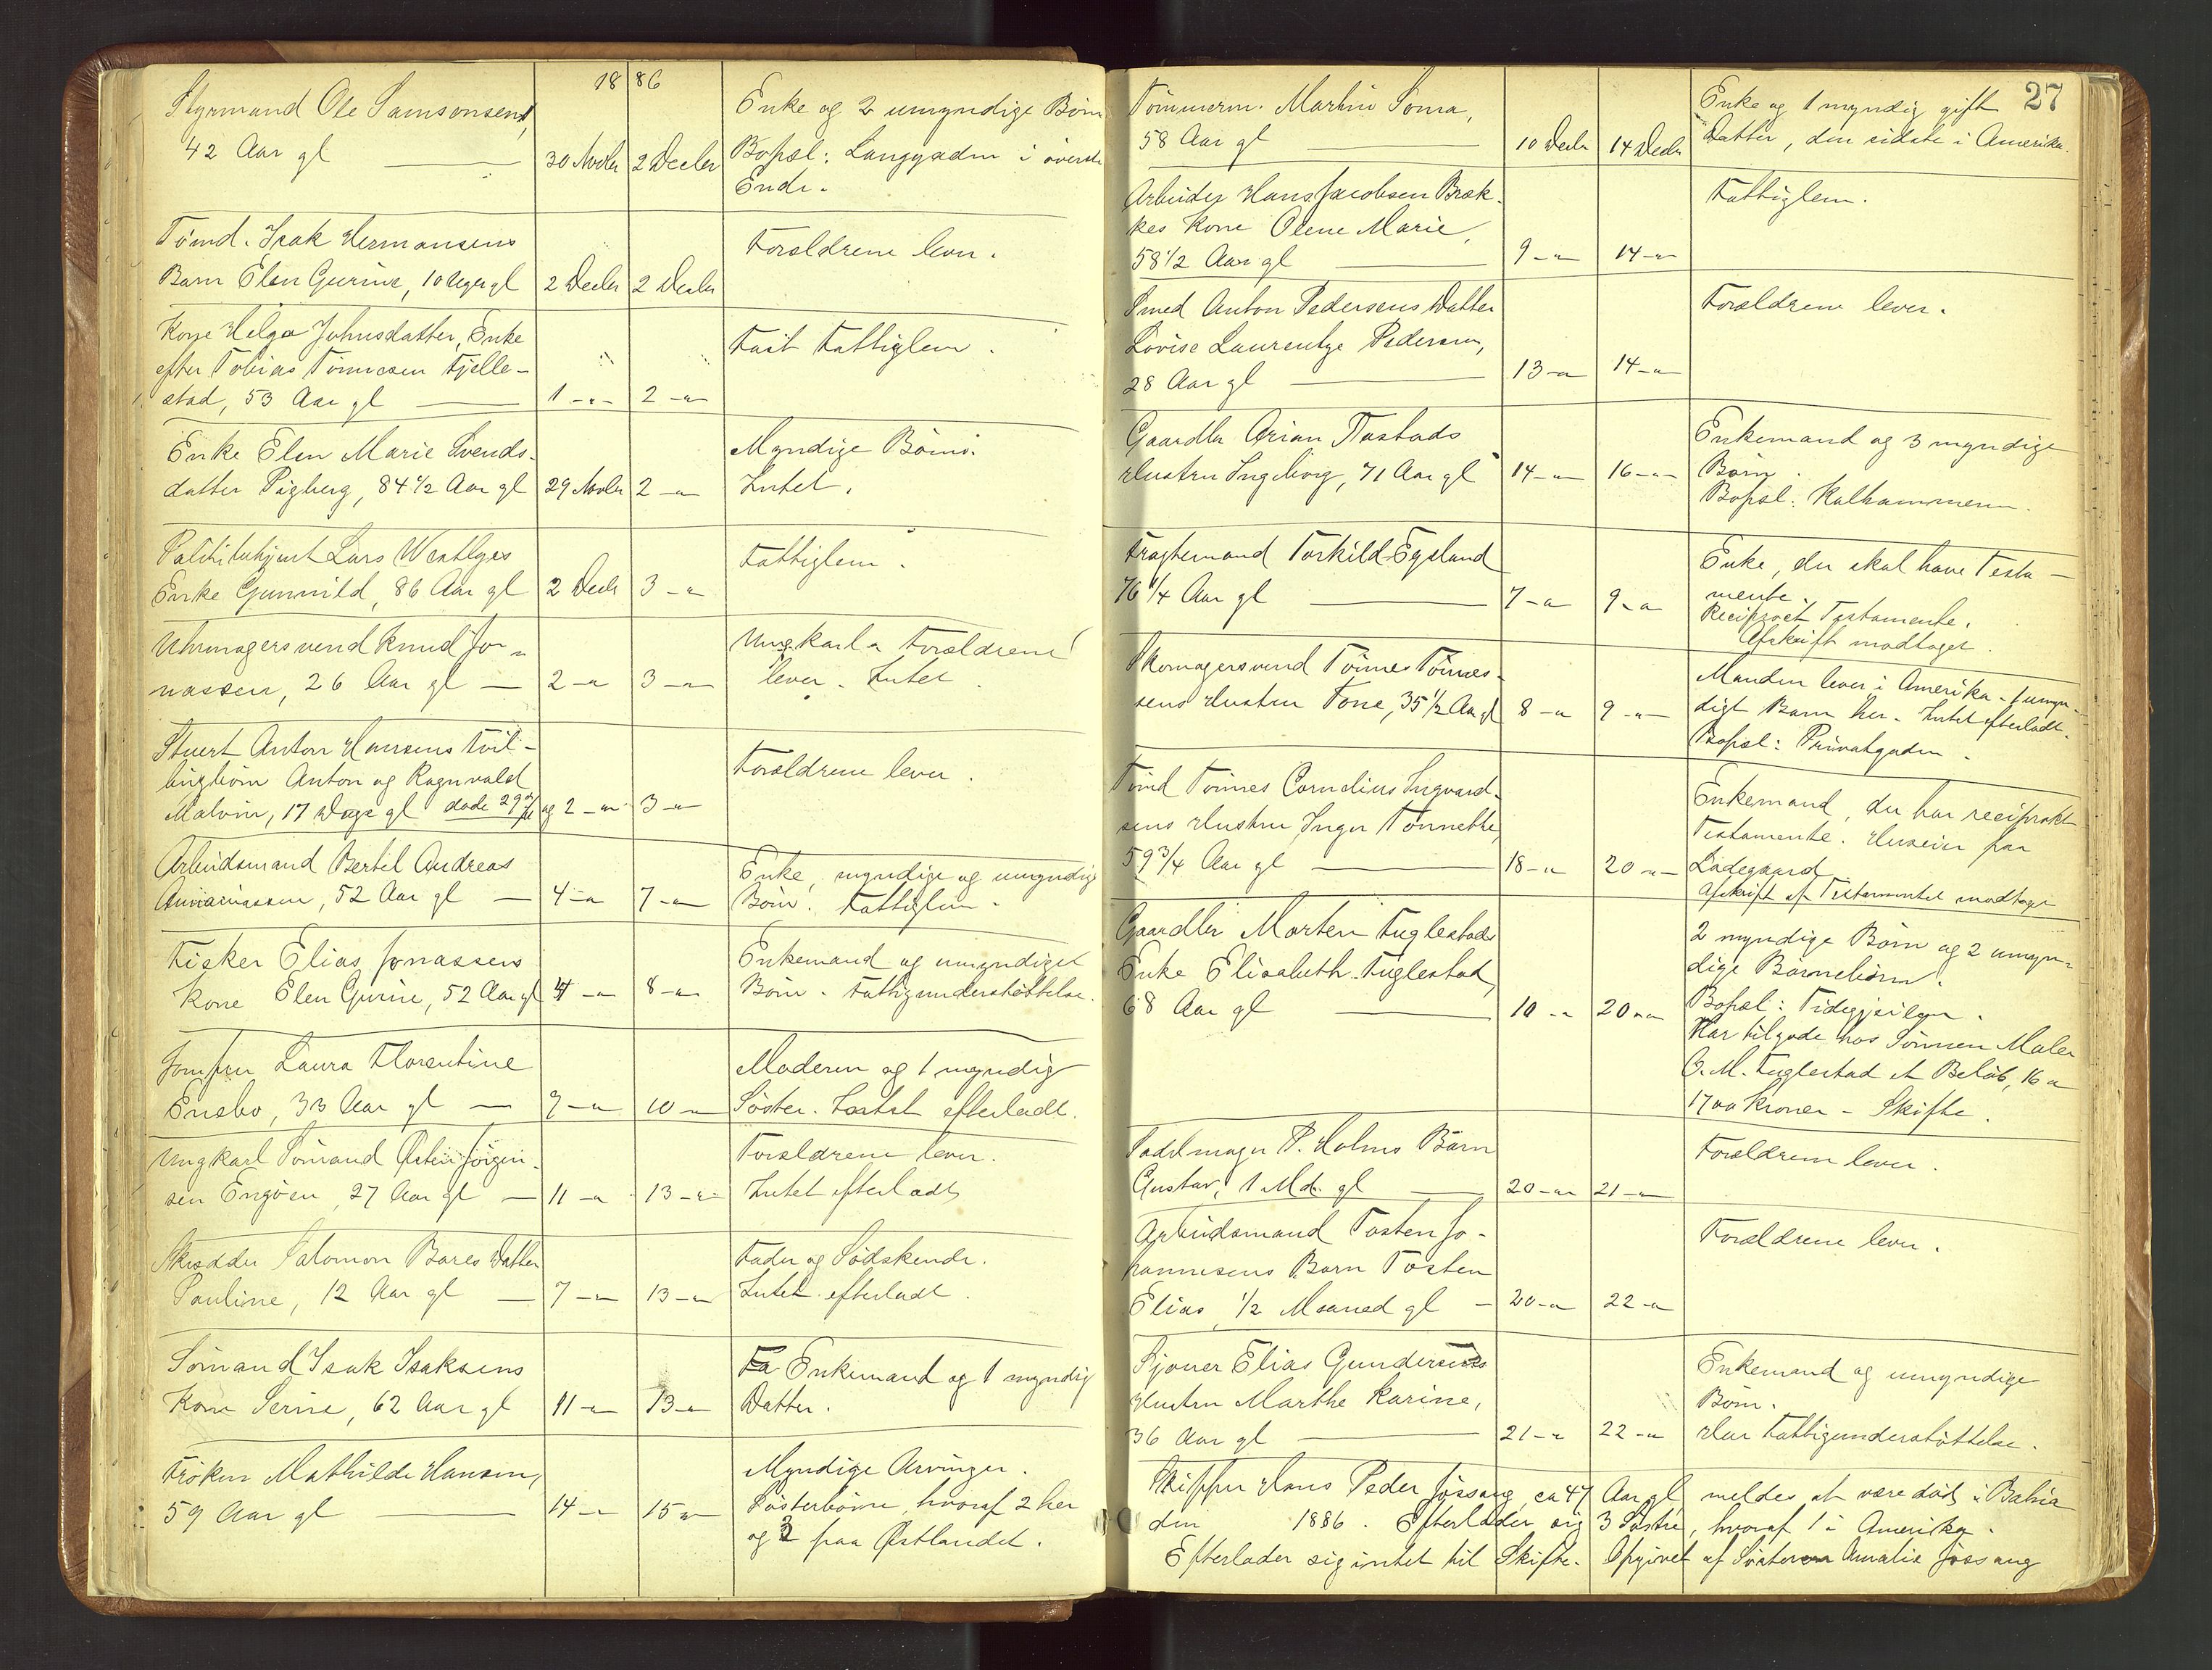 1886
Styrmand Ole Samsonsen,
42 Aar gl — 30 Novbr 2 Decbr
Enke og 2 umyndige Børn
Bopæl: Langgaden i øverste
Ende.
Tømd. Isak Hermansens
Barn Elen Gurine, 10 Uger gl 2 Decbr 2 Decbr
Forældrene lever.
Kone Helga Johnsdatter, Enke
efter Tobias Tønnesen Fjelle-
stad, 53 Aar gl — 1 -"- 2 -"-
Fast Fattiglem.
Enke Elen Marie Svends-
datter Pigberg, 84 1/2 Aar gl 29 Novbr 2 -"-
Myndige Børn.
Intet.
Politibetjent Lars Westlyes
Enke Gunnild, 86 Aar gl 2 Decbr 3 -"-
Fattiglem.
Uhrmagersvend Knud Jo-
nassen, 26 Aar gl — 2 -"- 3 -"-
Ungkarl. Forældrene
lever. Intet.
Stuert Anton Hansens Tvil-
lingbørn Anton og Ragnvald
Malvin, 17 Dage gl døde 29/11 og 2 -"- 3 -"-
Forældrene lever.
Arbeidsmand Bertel Andreas
52 Aar gl — 4 -"- 7 -"-
Enke, myndige og umyndige
Børn. Fattiglem.
Fisker Elias Jonassens
Kone Elen Gurine, 52 Aar gl 4 -"- 8 -"-
Enkemand og umyndiget
Børn. Fattigunderstøttelse.
Jomfru Laura Florentine
Enebo, 33 Aar gl — 9 -"- 10 -"-
Moderen og 1 myndig
Søster. Intet efterladt.
Ungkarl Sømand Østen Jørgen-
sen Engøen, 27 Aar gl — 11 -"- 13 -"-
Forældrene lever.
Intet efterladt
Skrædder Salomon Bores Datter
Pauline, 12 Aar gl — 7 -"- 13 -"-
Fader og Sødskende.
Intet efterladt.
Sømand Isak Isaksens
Kone Serine, 62 Aar gl 11 -"- 13 -"-
Fa Enkemand og 1 myndig
Datter.
Frøken Mathilde Hansen,
59 Aar gl — 14 -"- 15 -"-
Myndige Arvinger.
Søsterbørn, hvoraf 2 her
og 3 paa Østlandet.
27
Tømmerm. Martin Soma,
58 Aar gl — 10 Decbr 14 Decbr
Enke og 1 myndig gift
Datter, den sidste i Amerika.
Arbeider Hans Jacobsen Bræk-
kes Kone Olene Marie,
58 1/2 Aar gl — 9 -"- 14 -"-
Fattiglem.
Smed Anton Pedersens Datter
Lovise Laurentze Pedersen,
28 Aar gl — 13 -"- 14 -"-
Forældrene lever.
Gaardbr Arian Tastads
Hustru Ingeborg, 71 Aar gl 14 -"- 16 -"-
Enkemand og 3 myndige
Børn.
Bopæl: Kalhammeren.
Fragtemand Torkild Egeland
76 1/4 Aar gl — 7 -"- 9 -"-
Enke, der skal have Testa-
mente.
Reciproct Testamente.
Afskrift modtaget.
Skomagersvend Tønnes Tønnes-
sens Hustru Tone, 35 1/2 Aar gl 8 -"- 9 -"-
Manden lever i Amerika - 1 umyn-
digt Barn her. Intet efterladt.
Bopæl: Privatgaden.
Tømd Tønnes Cornelius Ingvard-
sens Hustru Inger Tonnette,
59 3/4 Aar gl — 18 -"- 20 -"-
Enkemand, der har reciprokt
Testamente. Huseier paa
Ladegaard
Afskrift af Testamentet modtaget
Gaardbr Morten Fuglestads
Enke Elisabeth Fuglestad,
68 Aar gl — 10 -"- 20 -"-
2 myndige Børn og 2 umyn-
dige Børnebørn.
Bopæl:
Har tilgode hos Sønnen Maler
O. M. Fuglestad et Beløb, 16 a
1700 Kroner - Skifte.
Sadelmager P. Holms Barn
Gustav, 1 Md. gl — 20 -"- 21 -"-
Forældrene lever.
Arbeidsmand Tosten Jo-
hannesens Barn Tosten
Elias, 1/2 Maaned gl — 20 -"- 22 -"-
Forældrene lever.
Sjouer Elias Gundersens
Hustru Marthe Karine,
36 Aar gl — 21 -"- 22 -"-
Enkemand og umyndige
Børn.
Har Fattigunderstøttelse.
Skipper Hans Peder Jøssang, ca 47 Aar gl meldes at være død i Bahia
den 1886. Efterlader sig 3 Søstre, hvoraf 1 i Amerika.
Efterlader sig intet til Skifte. Opgivet af Søsteren Amalie Jøssang